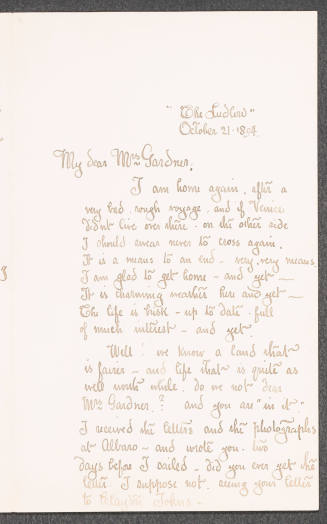 "The Ludlow"
October 21. 1894.
My dear Mrs Gardner,
I am home again, after a
very bad, rough voyage, and if Venice
didn't live over there - on the other side
I should swear never to cross again.
It is a means to an end - very, very means.
I am glad to get home - and yet —
It is charming weather here and yet —
The life is brisk - up to date - full
of much interest - and yet
Well! we know a land that
is fairer - and life that is quite as
well worth while, do we not dear
Mrs Gardner? and you are "in it"
I received the letters and the photographs
at Albaro - and wrote you two
days before I sailed - did you ever get the
letter I suppose not, seeing your letter
to Clayton Johns -